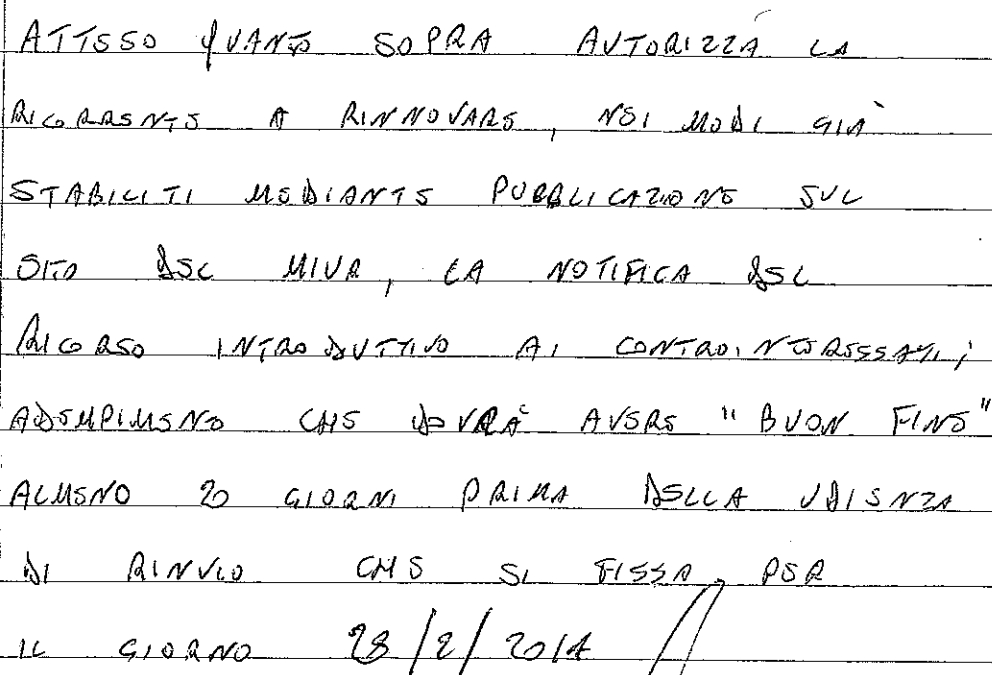 ATTESO QUANTO SOPRA AUTORIZZA LA
RICORRENTE A RINNOVARE, NEI MODI GIÀ
STABILITI MEDIANTE PUBBLICAZIONE SUL
SITO DEL MIUR, LA NOTIFICA DEL
RICORSO INTRODUTTIVO AI CONTROINTERESSATI;
ADEMPIMENTO CHE DOVRÀ AVERE "BUON FINE"
ALMENO 20 GIORNI PRIMA DELLA UDIENZA
DI RINVIO CHE SI FISSA PER
IL GIORNO 28/2/2014